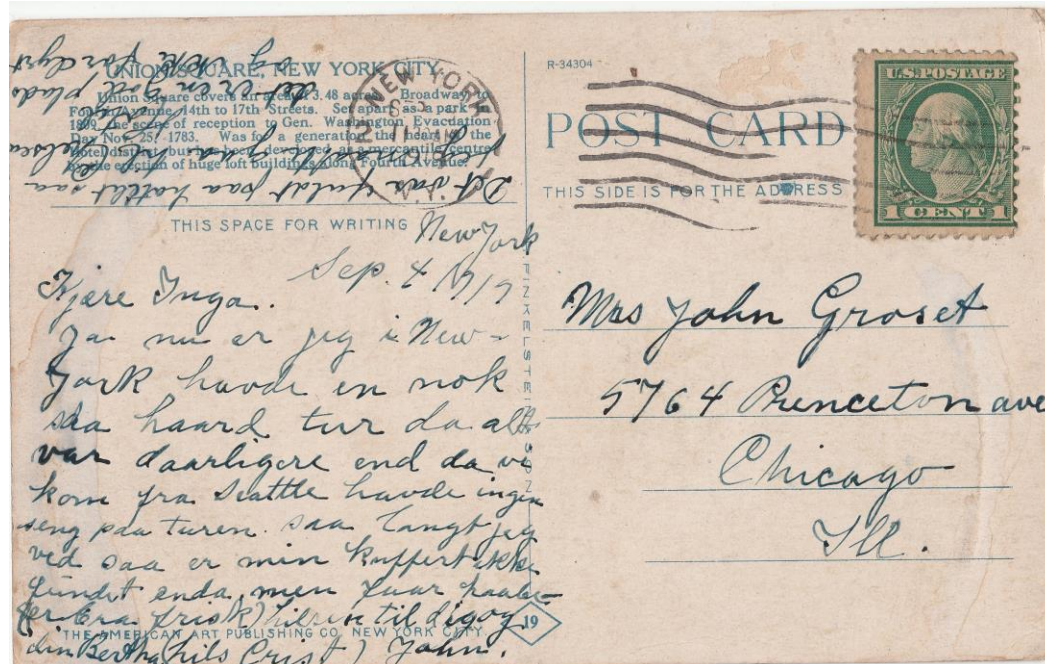 UNION SQUARE, NEW YORK CITY.
Union Square covers an area of 3.48 acres, Broadway to
Fourth Avenue, 14th to 17th Streets. Set apart as a park in
1809, the scene of reception to Gen. Washington, Evacuation
Day Nov. 25, 1783. Was for a generation the heart of the
hotel district but has been developed as a mercantile centre
by the erection of huge loft buildings along Fourth Avenue.
THIS SPACE FOR WRITING
New York
Sep. 4 1917
Kjære Inga.
Ja nu er jeg i New-
York havde en nok
saa haard tur da alt
var daarligere end da vi
kom fra Seattle havde ingen
seng paa turen. saa langt jeg
ved saa er min kuffert ikke
fundet enda, men faar haabe
hilsen til dig og
din Bertha (hils Crist) John.
Det var fuldt paa hotellet saa
det er en god plads
og ikke for dyrt
THE AMERICAN ART PUBLISHING CO. NEW YORK CITY.
19
R-34304
NEW YORK
POST CARD
THIS SIDE IS FOR THE ADDRESS
U.S. POSTAGE
1 CENT 1
Mrs John Groset
5764 Prenceton ave
Chicago
Ill.